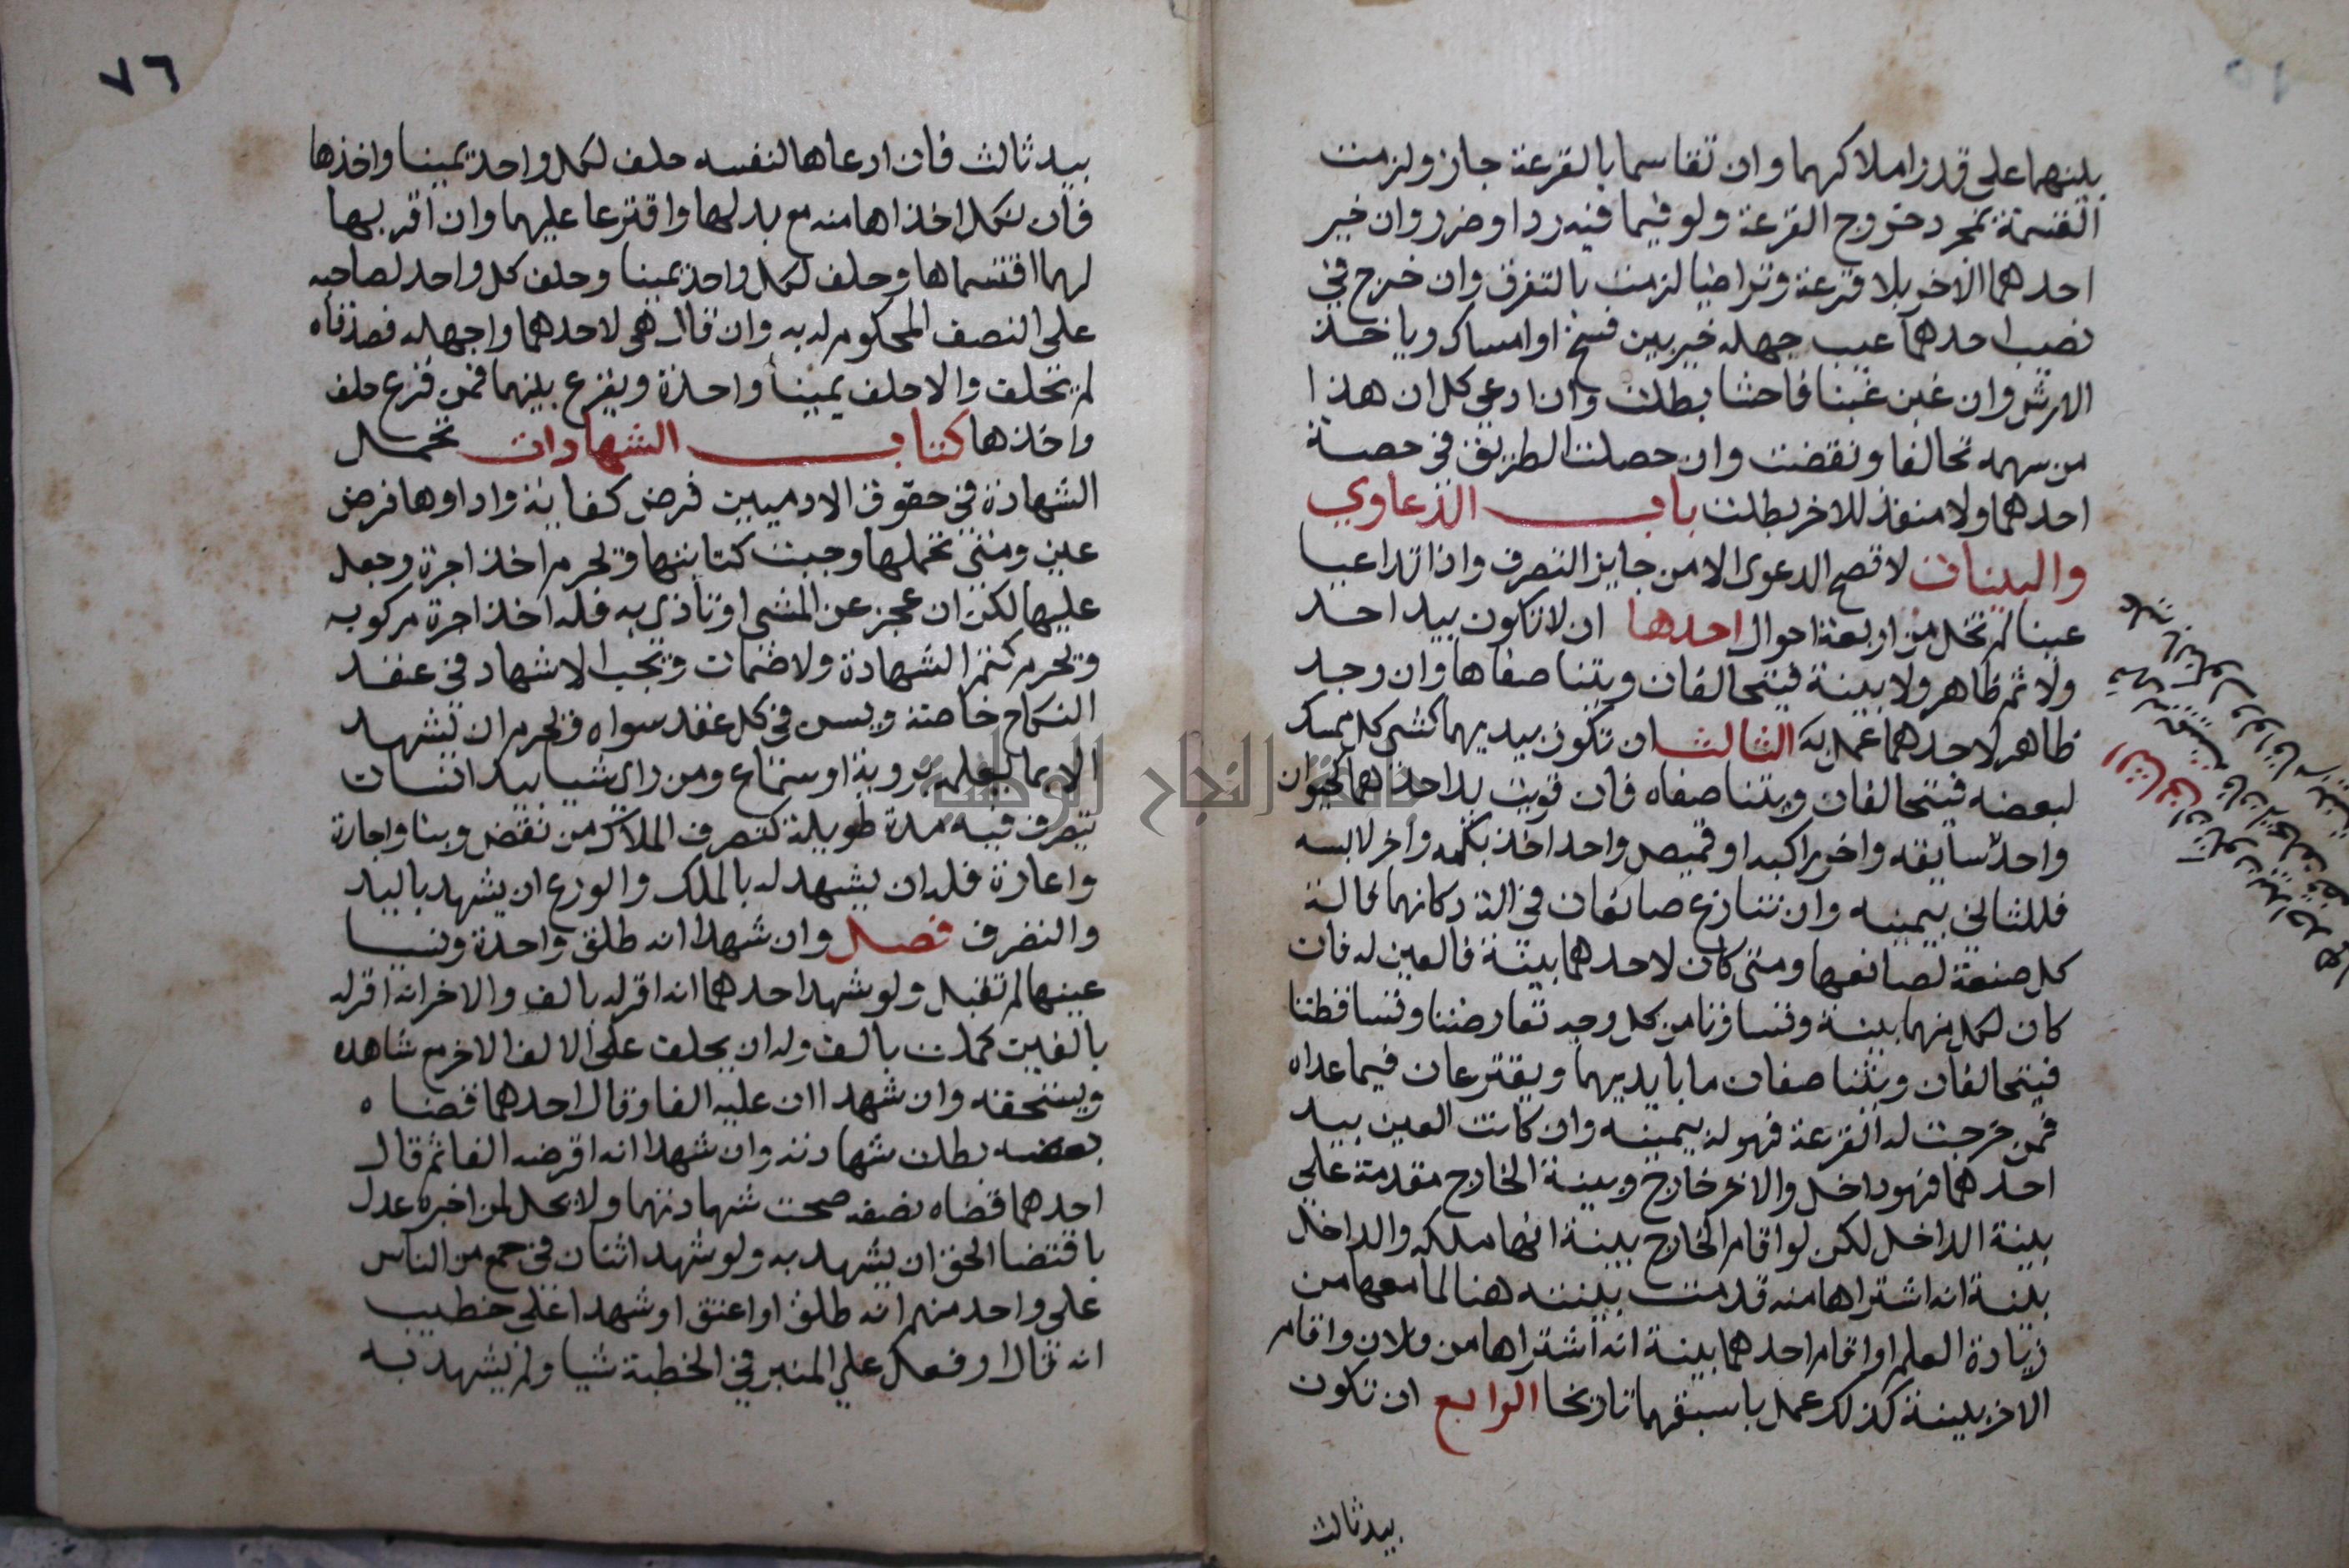 بينهما على قدر املاكهما وان تقاسما بالقرعة جاز ولزمت
القسمة بمجرد خروج القرعة ولو فيما فيه رد او ضرر وان خير
احدهما الاخر بلا قرعة وتراضيا لزمت بالتفرق وان خرج في
نصيب احدهما عيب جهله خير بين فسخ او امساك وياخذ
الارش وان غبن غبنا فاحشا بطلت وان ادعى كل ان هذا
من سهمه تحالفا ونقضت وان حصلت الطريق في حصة
احدهما ولا منفذ للاخر بطلت باب الدعاوي
والبينات لا تصح الدعوى الا من جايز التصرف واذا تداعيا
عينا لم تخل من اربعة احوال احدها ان لا تكون بيد احد
ولا ثم ظاهر ولا بينة فيتحالفان ويتناصفاها وان وجد
ظاهر لاحدهما عمل به الثالث ان تكون بيديهما كشي كل يمسك
لبعضه فيتحالفان ويتناصفاه فان قويت يد احدهما كحيوان
واحد سايقه واخر راكبه او قميص واحد اخذ بكمه واخر لابسه
فللثاني بيمينه وان تنازع صانعان في الة دكانهما فالة
كل صنعة لصانعها ومتى كان لاحدهما بينة فالعين له فان
كان لكل منهما بينة وتساوتا من كل وجه تعارضتا وتساقطتا
فيتحالفان ويتناصفان ما بايديهما ويقترعان فيما عداه
فمن خرجت له القرعة فهو له بيمينه وان كانت العين بيد
احدهما فهو داخل والاخر خارج وبينة الخارج مقدمة على
بينة الداخل لكن لو اقام الخارج بينة انها ملكه والداخل
بينة انه اشتراها منه قدمت بينته هنا لما معها من
زيادة العلم او اقام احدهما بينة انه اشتراها من فلان واقام
الاخر بينة كذلك عمل باسبقهما تاريخا الرابع ان تكون
بيد ثالث
٧٦
بيد ثالث فان ادعاها لنفسه حلف لكل واحد يمينا واخذها
فان نكل اخذاها منه مع بدلها واقترعا عليهما وان اقر بها
لهما اقتسماها وحلف لكل واحد يمينا وحلف كل واحد لصاحبه
على النصف المحكوم له به وان قال هي لاحدهما واجهله فصدقاه
لم يحلف والا حلف يمينا واحدة ويقرع بينهما فمن قرع حلف
واخذها كتاب الشهادات تحمل
الشهادة في حقوق الادميين فرض كفاية واداوها فرض
عين ومتى تحملها وجبت كتابتها وتحرم اخذ اجرة وجعل
عليها لكن ان عجز عن المشي او تاذى به فله اخذ اجرة مركوبه
ويحرم كتم الشهادة ولا ضمان ويجب الاشهاد في عقد
النكاح خاصة ويسن في كل عقد سواه فيحرم ان يشهد
الا بما يعلمه بروية او سماع ومن راى شيا بيد انسان
يتصرف فيه مدة طويلة كتصرف الملاك من نقض وبنا واجارة
واعارة فله ان يشهد له بالملك والورع ان يشهد باليد
والتصرف فصل وان شهدا انه طلق واحدة ونسيا
عينها لم تقبل ولو شهد احدهما انه اقر له بالف والاخر انه اقر له
بالفين كملت بالف وله ان يحلف على الالف الاخر مع شاهده
ويستحقه وان شهدا ان عليه الفا وقال احدهما قضاه
بعضه بطلت شهادته وان شهدا انه اقرضه الفا ثم قال
احدهما قضاه نصفه صحت شهادتهما ولا يحل لمن اخبره عدل
باقتضا الحق ان يشهد به ولو شهد اثنان في جمع من الناس
على واحد منهم انه طلق او اعتق او شهدا على خطيب
انه قال او فعل على المنبر في الخطبة شيا ولم يشهد به
جامعة النجاح الوطنية